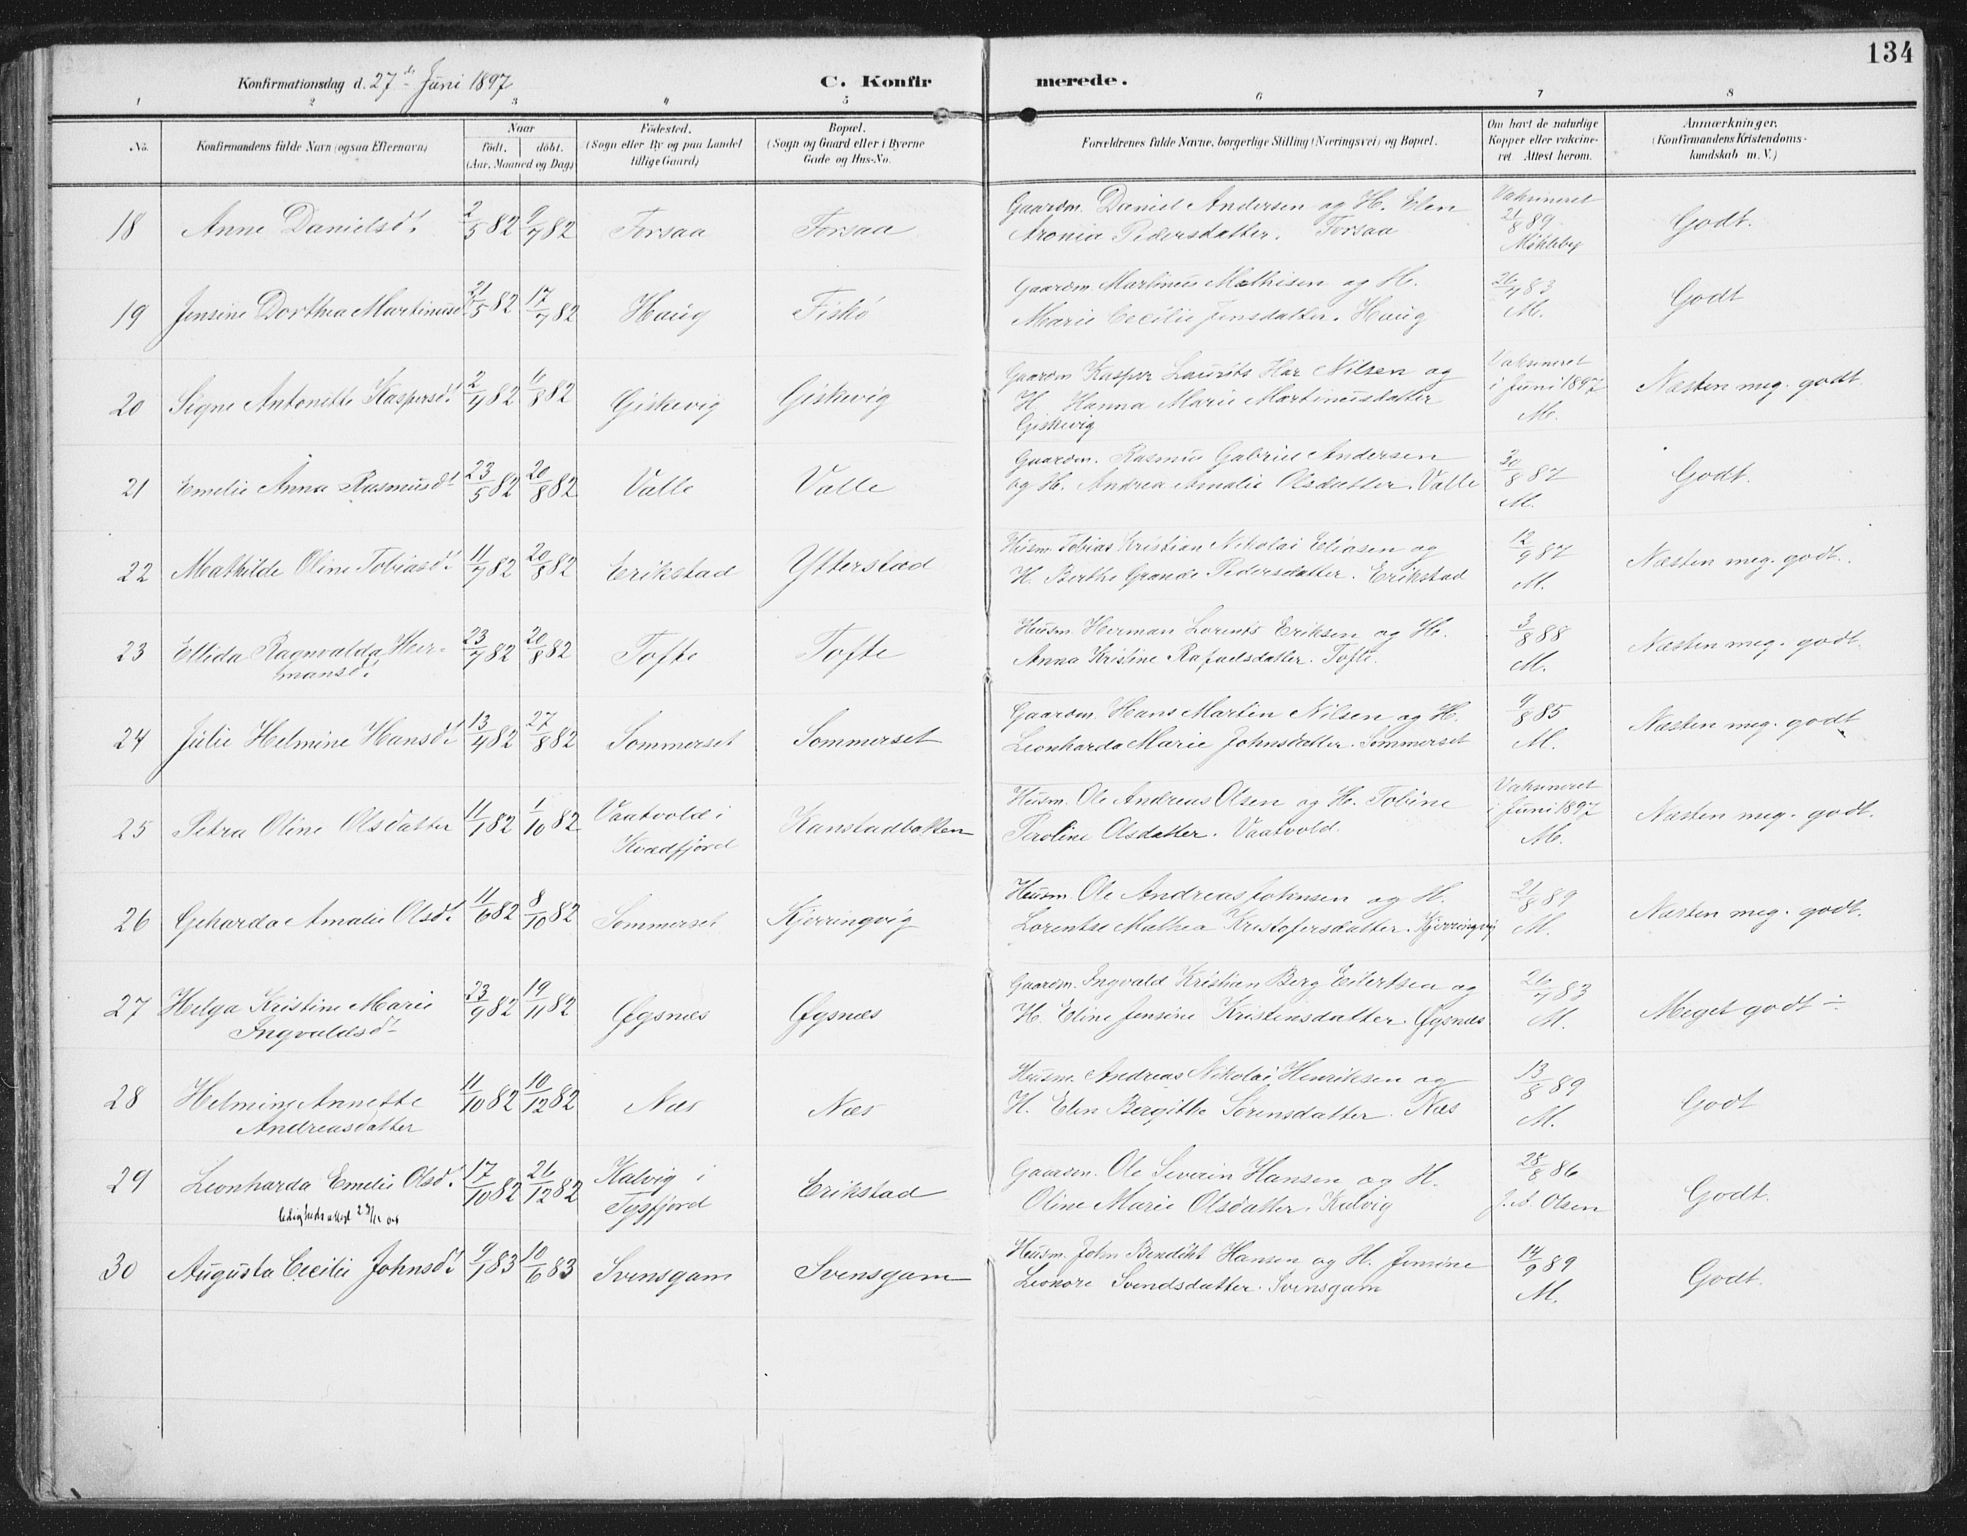 134
Konfirmationsdag d. 27de Juni 1897
C. Konfirmerede.
1 2 3 4 5 6 7 8
No.
Konfirmandens fulde Navn (ogsaa Efternavn)
Naar
født. døbt.
(Aar, Maaned og Dag)
Fødested.
(Sogn eller By og paa Landet
tillige Gaard)
Bopæl.
(Sogn og Gaard eller i Byerne
Gade og Hus-No.
Forældrenes fulde Navne, borgerlige Stilling (Næringsvei) og Bopæl.
Om havt de naturlige
Kopper eller vakcine-
ret. Attest herom.
Anmærkninger.
(Konfirmandens Kristendoms-
kundskab m. V.)
18 Anne Danielsdt. 2/5 82 9/7 82 Forsaa Forsaa Gaardm. Daniel Andersen og H. Elen Vaksineret Godt.
Aronia Pedersdatter. Forsaa 21/8 89
Mökleby
19 Jensine Dorthea Martinusd 21/5 82 17/7 82 Haug Fiskö Gaardm. Martinus Mathisen og H. 26/7 83 Godt
Marie Cecilie Jensdatter. Haug M.
20 Signe Antonette Kaspersdt. 2/7 82 6/8 82 Giskevig Giskevig Gaardm Kasper Laurits Har Nilsen og Vaksineret Næsten meg. godt.
H. Hanna Marie Martinusdatter i Juni 1897
Giskevig M.
21 Emelie Anna Rasmusdt 23/5 82 20/8 82 Valle Valle Gaardm. Rasmus Gabriel Andersen 30/8 87 Godt.
og H. Andrea Amalie Olsdatter. Valle M.
22 Mathilde Oline Tobiasdt. 11/7 82 20/8 82 Erikstad Ytterstad Husm. Tobias Kristian Nikolai Eliasen og 12/9 87 Næsten meg. godt.
H. Berthe Grande Pedersdatter. Erikstad M.
23 Ellida Ragnvalda Her- 23/7 82 20/8 82 Tofte Tofte Husm. Herman Lorents Eriksen og H. 3/8 88 Næsten meg. godt.
mansdt. Anna Kristine Rafaelsdatter. Tofte. M.
24 Julie Helmine Hansdt. 13/7 82 27/8 82 Sommerset Sommerset Gaardm. Hans Martin Nilsen og H. 9/8 85 Næsten meg. godt
Leonharda Marie Johnsdatter. Sommerset M.
25 Petra Oline Olsdatter 11/1 82 1/10 82 Vaatvold i Kanstadbotten Husm. Ole Andreas Olsen og H. Tobine Vaksineret Næsten meg. godt.
Kvædfjord Peroline Olsdatter. Vaatvold. i Juni 1897
M.
26 Geharda Amalie Olsdt. 11/6 82 8/10 82 Sommerset Kjerringvig Husm. Ole Andreas Johnsen og H. 21/8 89 Næsten meg. godt.
Lorentse Mathea Kristofersdatter. Kjerringvig M.
27 Helga Kristine Marie 23/9 82 19/11 82 Øgsnæs Øgsnæs Gaardm. Ingvald Kristian Berg Eilertsen og 26/7 83 Meget godt ÷
Ingvaldsdt H. Eline Jensine Kristensdatter. Øgsnæs M.
28 Helmine Annette 11/10 82 10/12 82 Næs Næs Husm. Andreas Nikolai Henriksen og 13/8 89 Godt
Andreasdatter H. Elen Bergithe Sörensdatter. Næs M.
29 Leonharda Emelie Olsdt. 17/10 82 26/12 82 Kalvig i Erikstad Gaardm. Ole Severin Hansen og H. 28/8 86 Godt.
Tysfjord Oline Marie Olsdatter. Kalvig J. A. Olsen
30 Augusta Cecilie Johnsdt. 9/1 83 10/6 83 Svensgam Svensgam Husm. John Bendikt Hansen og H. Jensine 14/9 89 Godt.
Leonore Svendsdatter. Svensgam M.